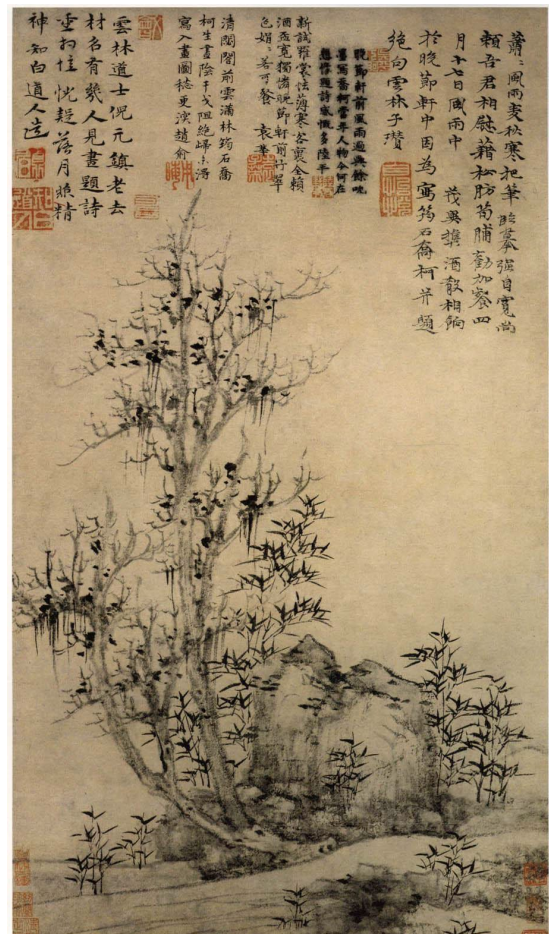 蕭〻風雨麥秋寒把筆臨摹強自寬尚
賴吾君相慰藉松肪筍脯勸加餐四
月十七日風雨中 茂異攜酒殽相餉
於晚節軒中因為寫筠石喬柯并題
絕句雲林子瓚
晚節軒前風雨過興餘吮
墨寫喬柯當年人物今何在
想像題詩感慨多陸平
新試羅裳怯薄寒客裏全賴
酒盃寬獨憐晚節軒前竹翠
色娟〻若可餐 袁華
清閟閣前雲滿林筠石喬
柯生晝陰干戈阻絕歸未得
寫入畫圖愁更深趙俞
雲林道士倪元鎮老去
材名有幾人見畫題詩
重相憶恍疑落月照精
神知白道人